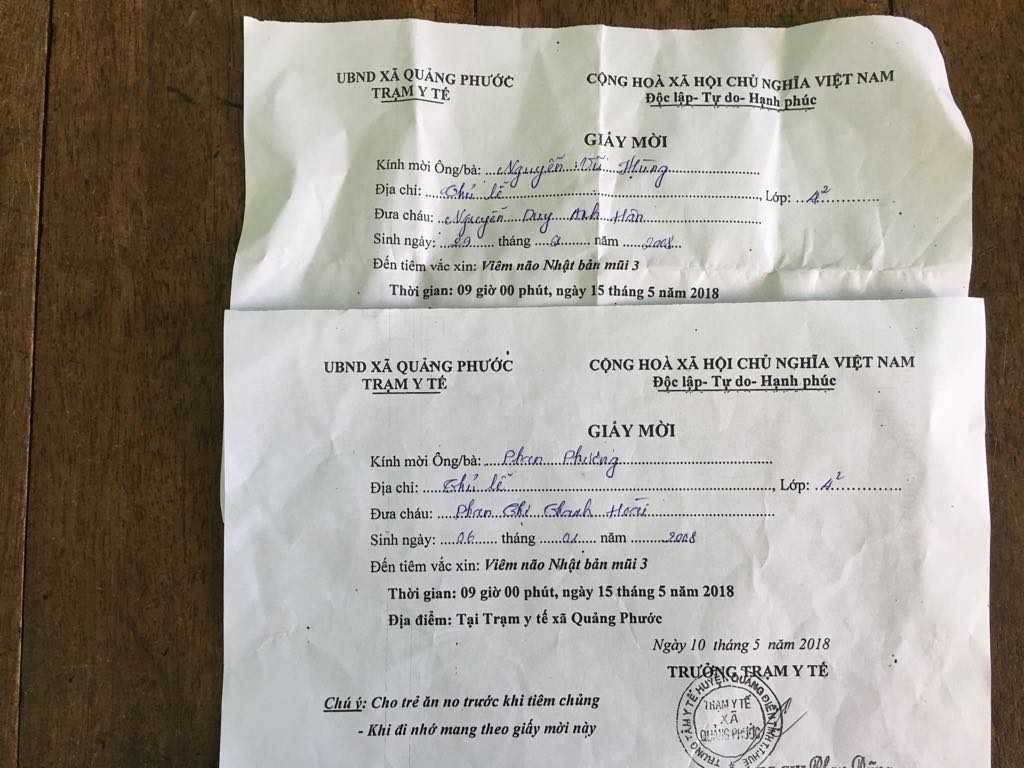 UBND XÃ QUẢNG PHƯỚC
TRẠM Y TẾ
CỘNG HOÀ XÃ HỘI CHỦ NGHĨA VIỆT NAM
Độc lập- Tự do- Hạnh phúc
GIẤY MỜI
Kính mời Ông/bà: Nguyễn Vũ Hùng
Địa chỉ: Thủ lễ, Lớp: 4²
Đưa cháu: Nguyễn Duy Anh Hân
Sinh ngày: 29 tháng năm 2008
Đến tiêm vắc xin: Viêm não Nhật bản mũi 3
Thời gian: 09 giờ 00 phút, ngày 15 tháng 5 năm 2018
UBND XÃ QUẢNG PHƯỚC
TRẠM Y TẾ
CỘNG HOÀ XÃ HỘI CHỦ NGHĨA VIỆT NAM
Độc lập- Tự do- Hạnh phúc
GIẤY MỜI
Kính mời Ông/bà: Phan Phương
Địa chỉ: Thủ lễ, Lớp: 4²
Đưa cháu: Phan Thị Thanh Hoài
Sinh ngày: 06 tháng năm 2008
Đến tiêm vắc xin: Viêm não Nhật bản mũi 3
Thời gian: 09 giờ 00 phút, ngày 15 tháng 5 năm 2018
Địa điểm: Tại Trạm y tế xã Quảng Phước
Ngày 10 tháng 5 năm 2018
TRƯỞNG TRẠM Y TẾ
Chú ý: Cho trẻ ăn no trước khi tiêm chủng
- Khi đi nhớ mang theo giấy mời này
TRUNG TÂM Y TẾ HUYỆN QUẢNG ĐIỀN TỈNH T.T.HUẾ
TRẠM Y TẾ
XÃ
QUẢNG PHƯỚC